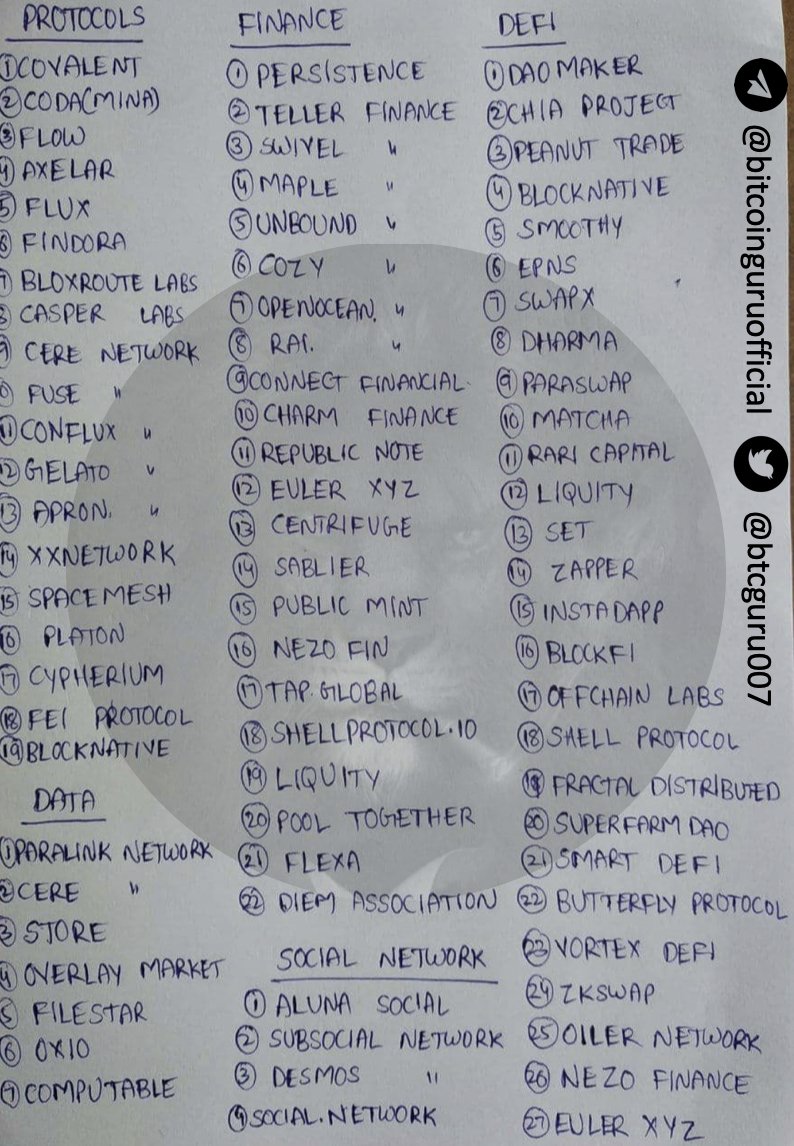 PROTOCOLS
①COVALENT
②CODA(MINA)
③FLOW
④AXELAR
⑤FLUX
⑥FINDORA
⑦BLOXROUTE LABS
⑧CASPER LABS
⑨CERE NETWORK
⑩FUSE "
⑪CONFLUX "
⑫GELATO "
⑬APRON. "
⑭XXNETWORK
⑮SPACEMESH
⑯PLATON
⑰CYPHERIUM
⑱FEI PROTOCOL
⑲BLOCKNATIVE
DATA
①PARALINK NETWORK
②CERE "
③STORE
④OVERLAY MARKET
⑤FILESTAR
⑥OXIO
⑦COMPUTABLE
FINANCE
①PERSISTENCE
②TELLER FINANCE
③SWIVEL "
④MAPLE "
⑤UNBOUND "
⑥COZY "
⑦OPENOCEAN. "
⑧RAI. "
⑨CONNECT FINANCIAL.
⑩CHARM FINANCE
⑪REPUBLIC NOTE
⑫EULER XYZ
⑬CENTRIFUGE
⑭SABLIER
⑮PUBLIC MINT
⑯NEZO FIN
⑰TAP.GLOBAL
⑱SHELLPROTOCOL.IO
⑲LIQUITY
⑳POOL TOGETHER
㉑FLEXA
㉒DIEM ASSOCIATION
SOCIAL NETWORK
①ALUNA SOCIAL
②SUBSOCIAL NETWORK
③DESMOS "
④SOCIAL.NETWORK
DEFI
①DAO MAKER
②CHIA PROJECT
③PEANUT TRADE
④BLOCKNATIVE
⑤SMOOTHY
⑥EPNS
⑦SWAPX
⑧DHARMA
⑨PARASWAP
⑩MATCHA
⑪RARI CAPITAL
⑫LIQUITY
⑬SET
⑭ZAPPER
⑮INSTADAPP
⑯BLOCKFI
⑰OFFCHAIN LABS
⑱SHELL PROTOCOL
⑲FRACTAL DISTRIBUTED
⑳SUPERFARM DAO
㉑SMART DEFI
㉒BUTTERFLY PROTOCOL
㉓VORTEX DEFI
㉔ZKSWAP
㉕OILER NETWORK
㉖NEZO FINANCE
㉗EULER XYZ
@bitcoinguruofficial
@btcguru007